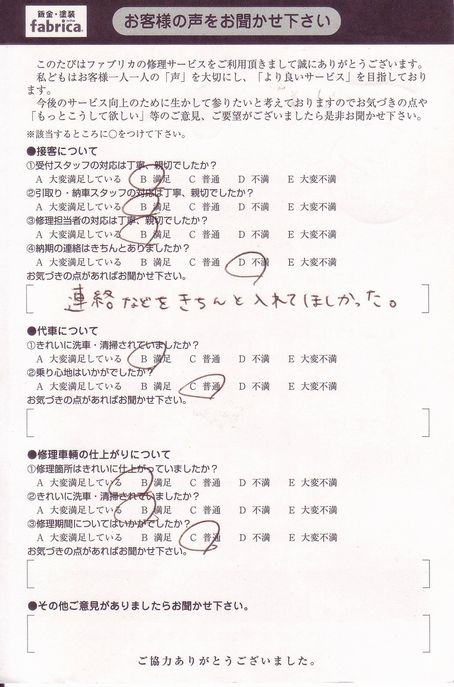 鈑金・塗装
fabrica.
お客様の声をお聞かせ下さい
このたびはファブリカの修理サービスをご利用頂きまして誠にありがとうございます。
私どもはお客様一人一人の「声」を大切にし、「より良いサービス」を目指しており
ます。
今後のサービス向上のために生かして参りたいと考えておりますのでお気づきの点や
「もっとこうして欲しい」等のご意見、ご要望がございましたら是非お聞かせ下さい。
※該当するところに○をつけて下さい。
●接客について
①受付スタッフの対応は丁寧、親切でしたか？
A 大変満足している B 満足 C 普通 D 不満 E 大変不満
②引取り・納車スタッフの対応は丁寧、親切でしたか？
A 大変満足している B 満足 C 普通 D 不満 E 大変不満
③修理担当者の対応は丁寧、親切でしたか？
A 大変満足している B 満足 C 普通 D 不満 E 大変不満
④納期の連絡はきちんとありましたか？
A 大変満足している B 満足 C 普通 D 不満 E 大変不満
お気づきの点があればお聞かせ下さい。
連絡などをきちんと入れてほしかった。
●代車について
①きれいに洗車・清掃されていましたか？
A 大変満足している B 満足 C 普通 D 不満 E 大変不満
②乗り心地はいかがでしたか？
A 大変満足している B 満足 C 普通 D 不満 E 大変不満
お気づきの点があればお聞かせ下さい。
●修理車輌の仕上がりについて
①修理箇所はきれいに仕上がっていましたか？
A 大変満足している B 満足 C 普通 D 不満 E 大変不満
②きれいに洗車・清掃されていましたか？
A 大変満足している B 満足 C 普通 D 不満 E 大変不満
③修理期間についてはいかがでしたか？
A 大変満足している B 満足 C 普通 D 不満 E 大変不満
お気づきの点があればお聞かせ下さい。
●その他ご意見がありましたらお聞かせ下さい。
ご協力ありがとうございました。